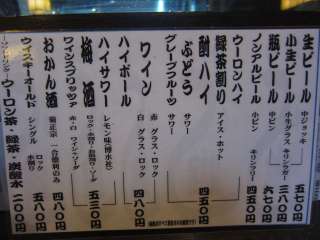 生ビール 中ジョッキ 五七〇円
小生ビール 小生グラス キリンラガー 三八〇円
瓶ビール 中ビン 六七〇円
ノンアルビール 小ビン キリンフリー 四五〇円
ウーロンハイ
緑茶割り アイス・ホット
酎ハイ 四五〇円
ぶどう サワー
グレープフルーツ サワー
ワイン 白 グラス・ロック
赤 グラス・ロック
ハイボール 四八〇円
ハイサワー レモン味(博水社)
梅酒 ロック・水割り・お湯割り・ソーダ 五三〇円
ワインスプリッツァ 赤・白 ワイン・ソーダ
おかん酒 菊正宗 一合徳利のみ 四八〇円
ウイスキーオールド シングル ロック 水割り 五八〇円
ウーロン茶・緑茶・炭酸水 二〇〇円